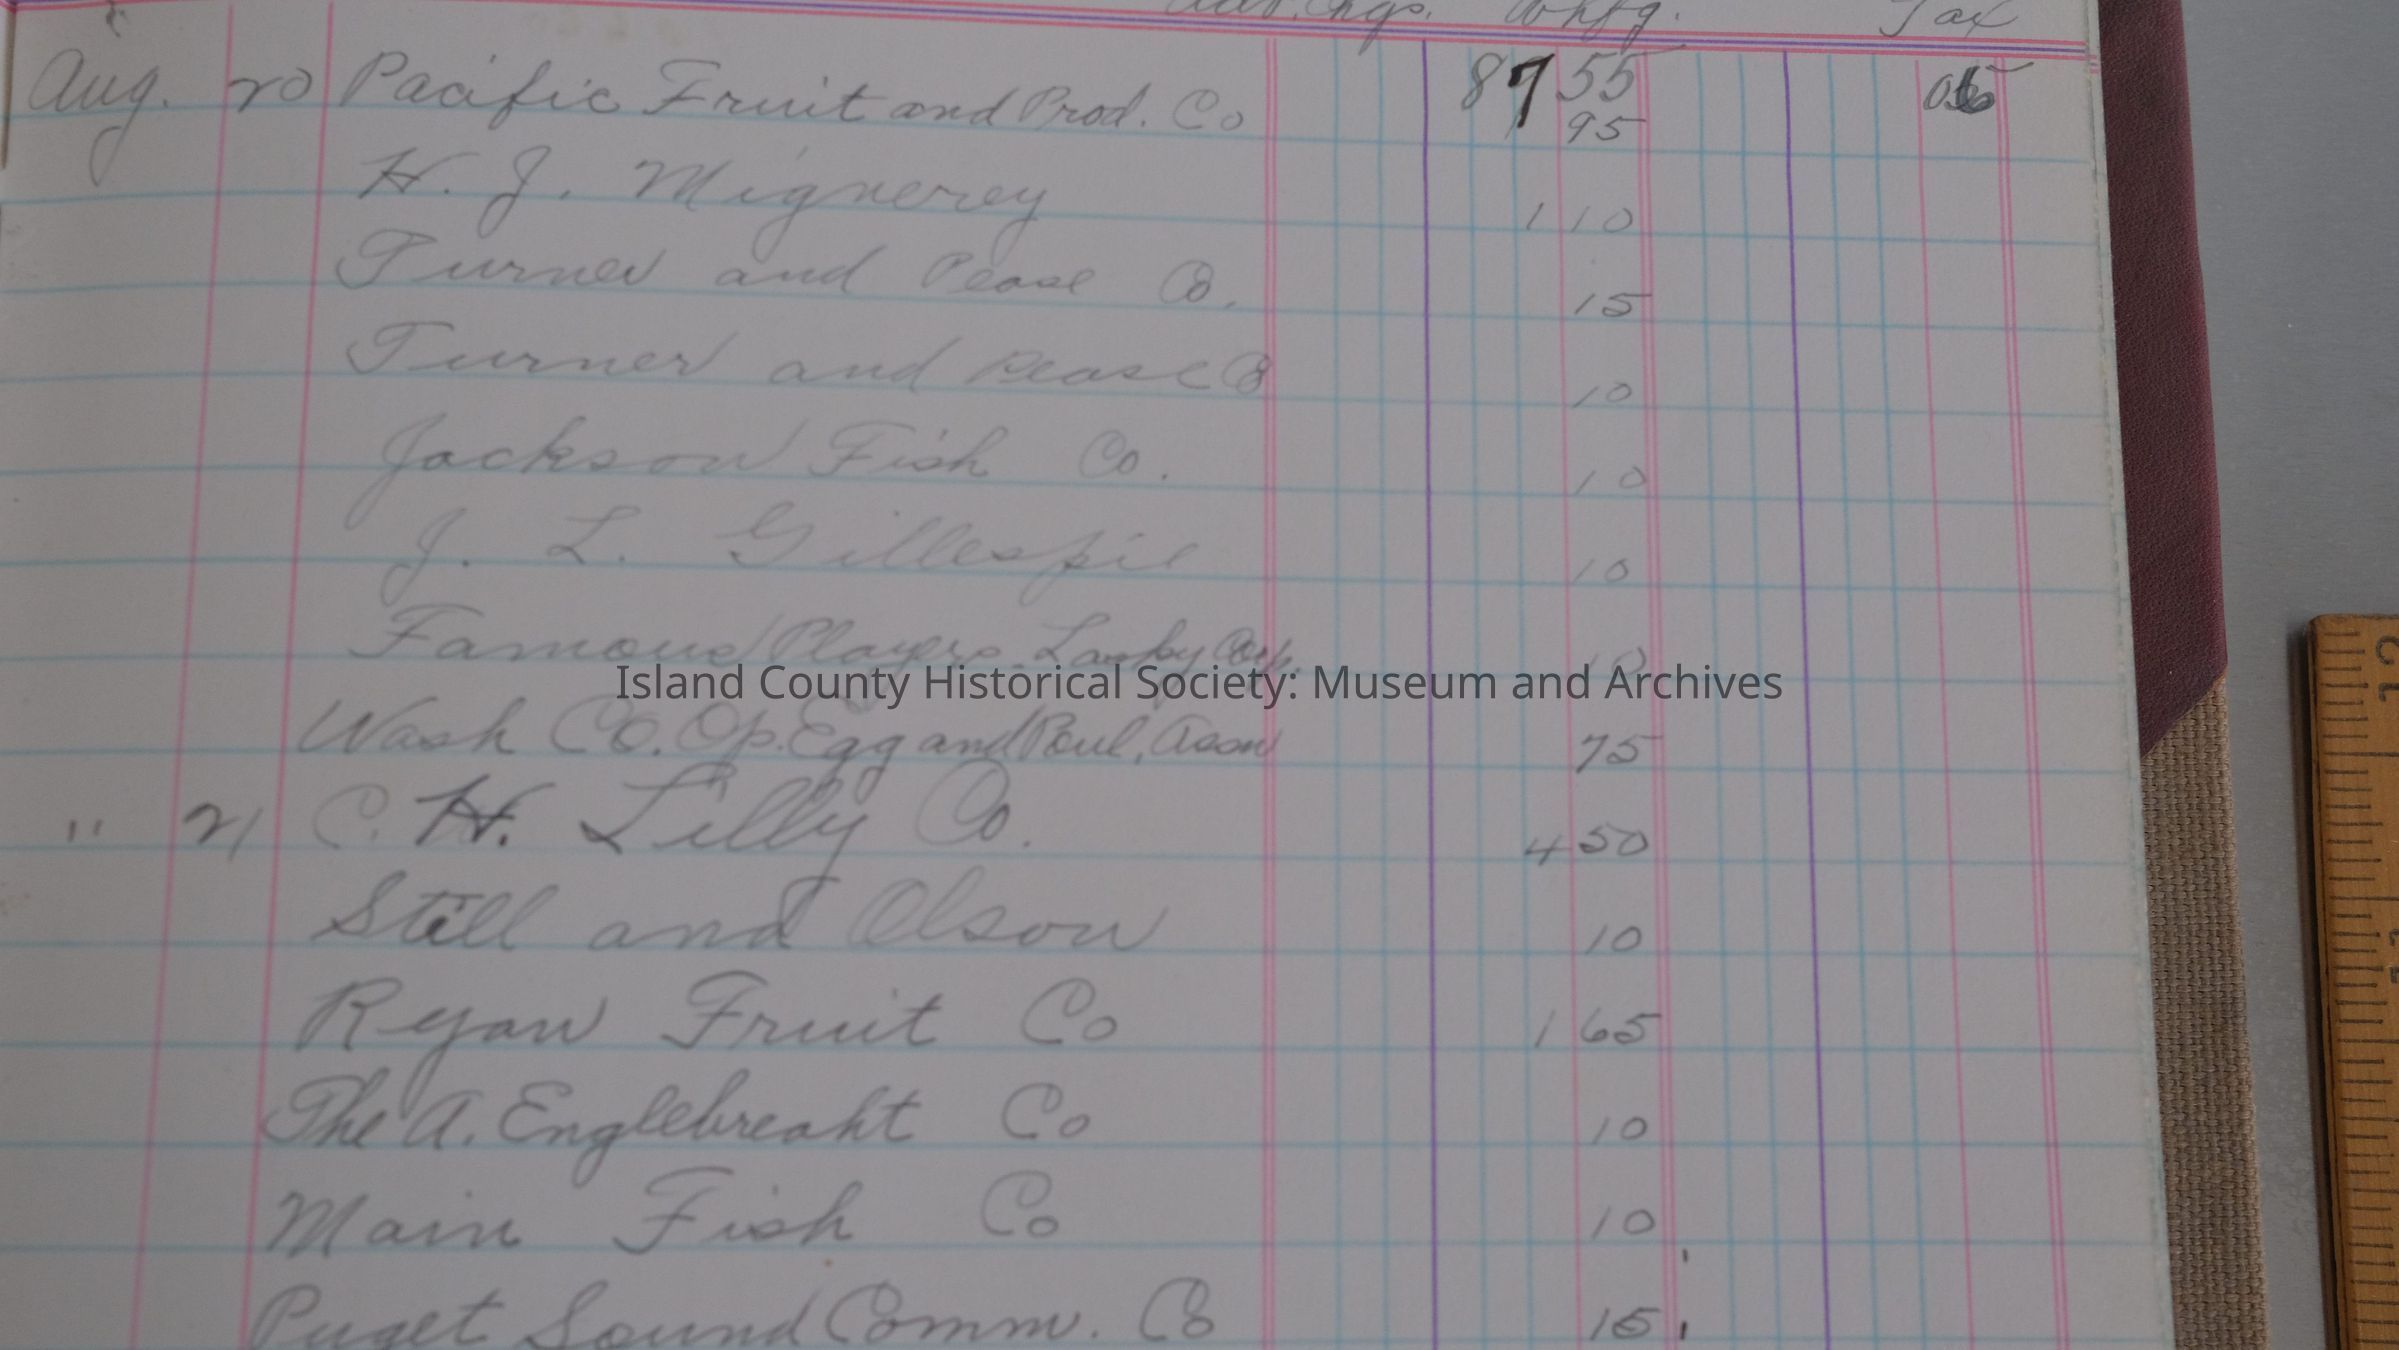 Adv. Chgs. Whfg. Tax
Aug. 20 Pacific Fruit and Prod. Co 87 55
95
H. J. Mignerey 1 10
Turner and Pease Co. 15
Turner and Pease Co 10
Jackson Fish Co. 10
J. L. Gillespie 10
Famous Players-Lasky Corp. 10
Island County Historical Society: Museum and Archives
Wash Co. Op. Egg and Poul, Assn 75
" 21 C. H. Lilly Co. 4 50
Still and Olson 10
Ryan Fruit Co 1 65
The A. Englebreaht Co 10
Main Fish Co 10
Puget Sound Comm. Co 15
12